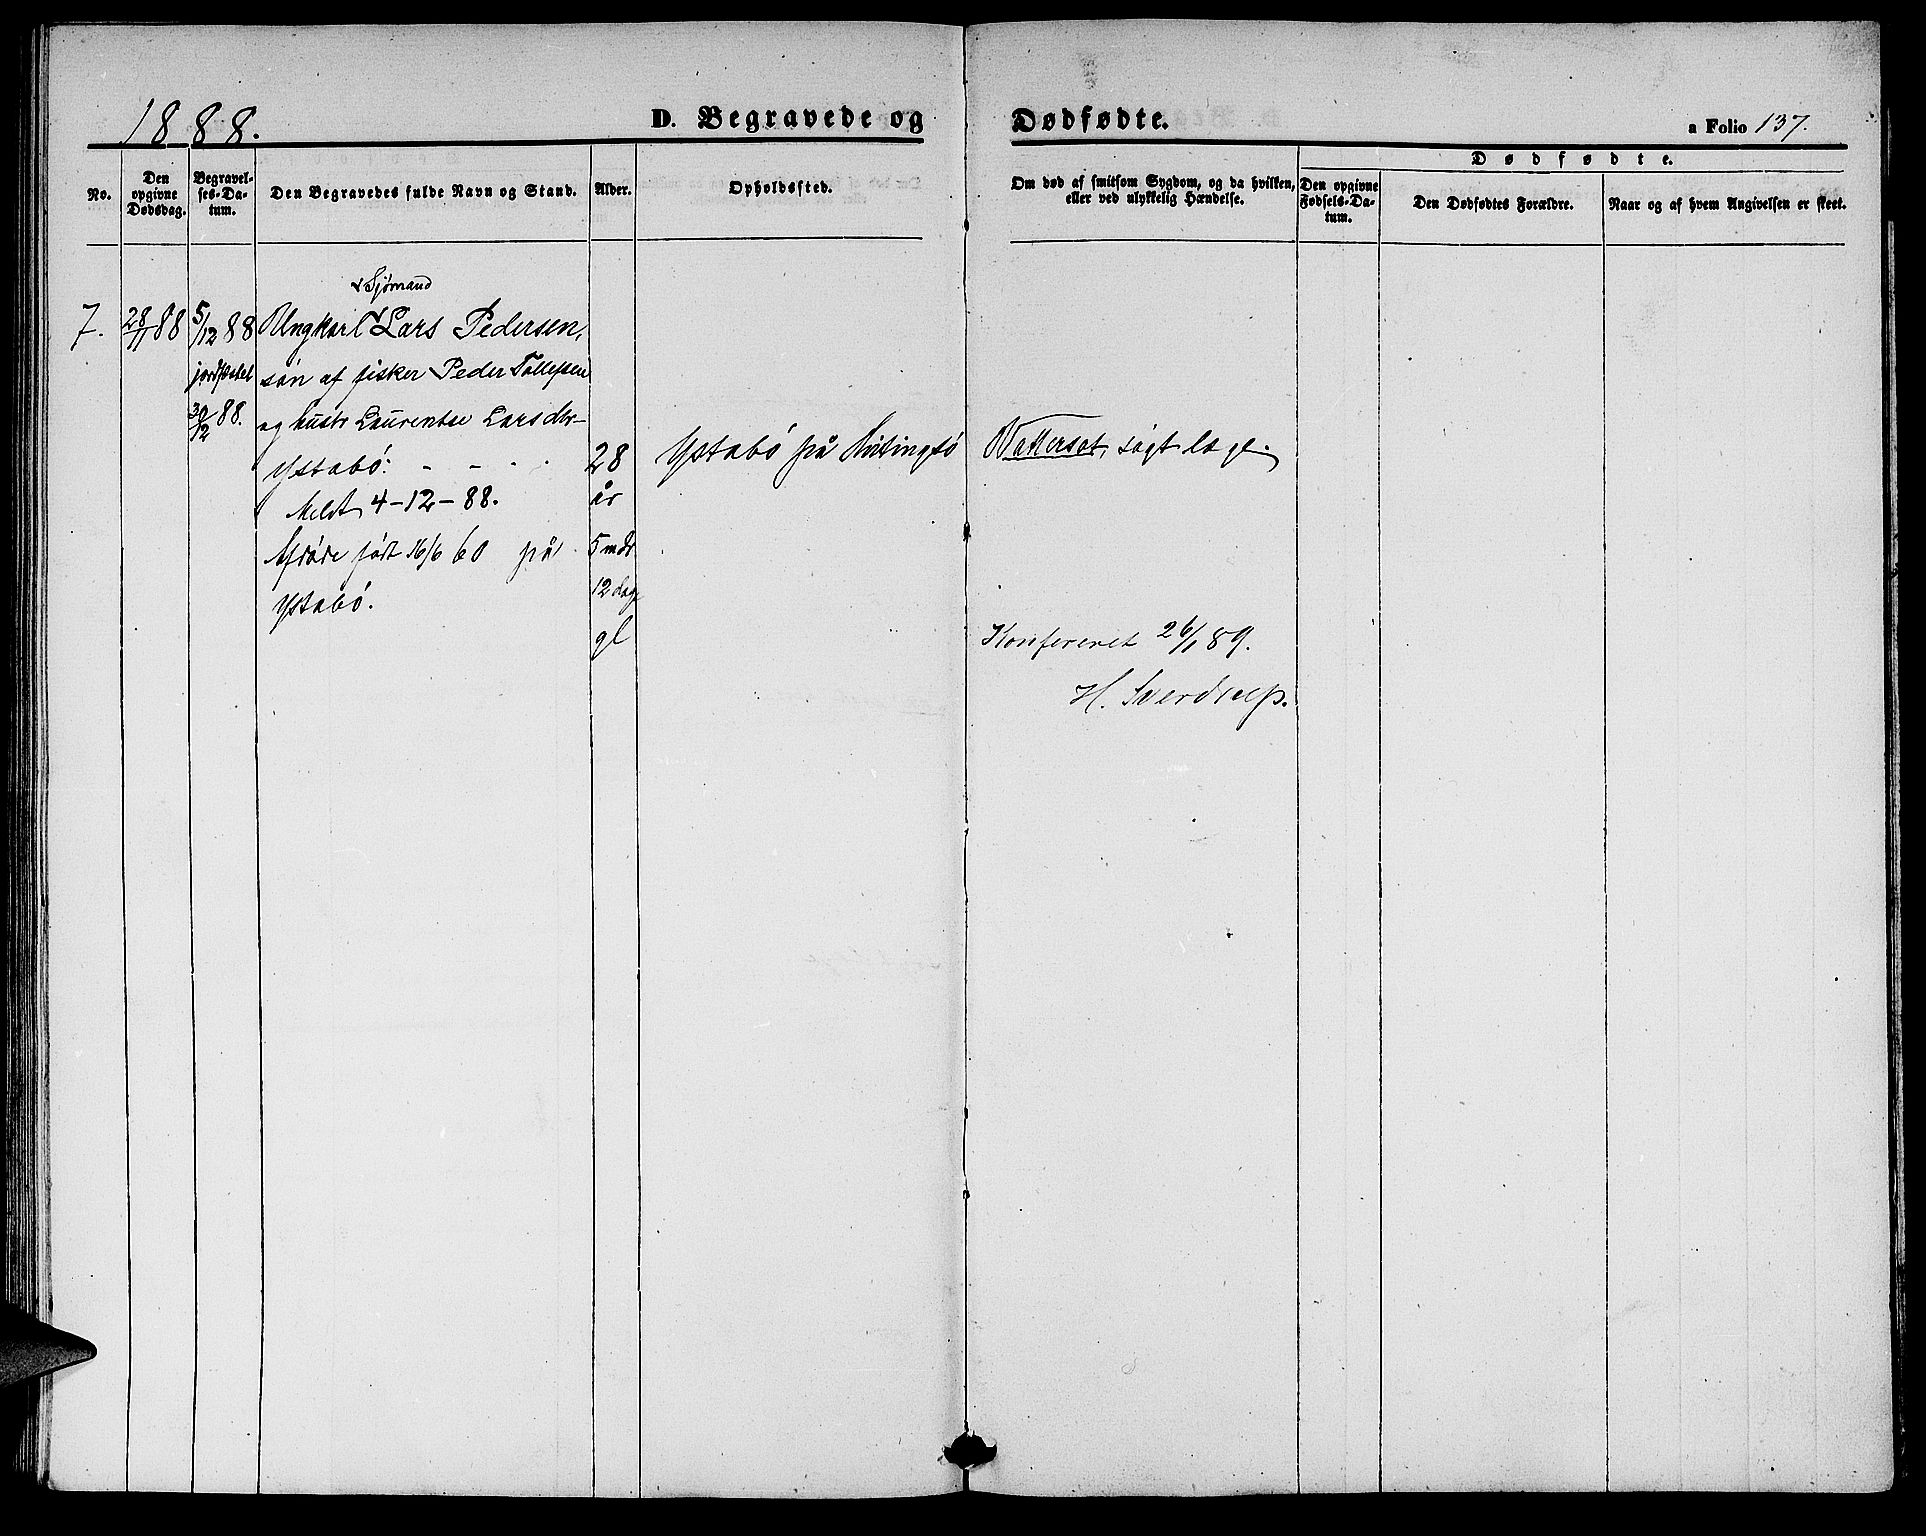 1888.
D. Begravede og
Dødfødte.
a Folio 137.
No.
Den opgivne Dødsdag.
Begravel-ses-Da-tum.
Den Begravedes fulde Navn og Stand.
Alder.
Opholdssted.
Om død af smitsom Sygdom, og da hvilken, eller ved ulykkelig Hændelse.
Dødfødte.
Den opgivne Fødsels-Da-tum.
Den Dødfødtes Forældre.
Naar og af hvem Angivelsen er skeet.
v Sjømand
7. 28/11 88 5/12 88 Ungkarl v Lars Pedersen,
jordfæstet søn af fisker Peder Tollefsen
30/12 88. og hustr Laurentse Larsdtr-
Ystabö: - - - - 28 Ystabö på Hvitingsö Vattersot, søgt læge.
Meldt 4-12-88. år
Afdöde född 16/6 60 på 5 mdr
Ystabö. 12 dage
gl
Konfereret 26/1 89.
H. Sverdrup.